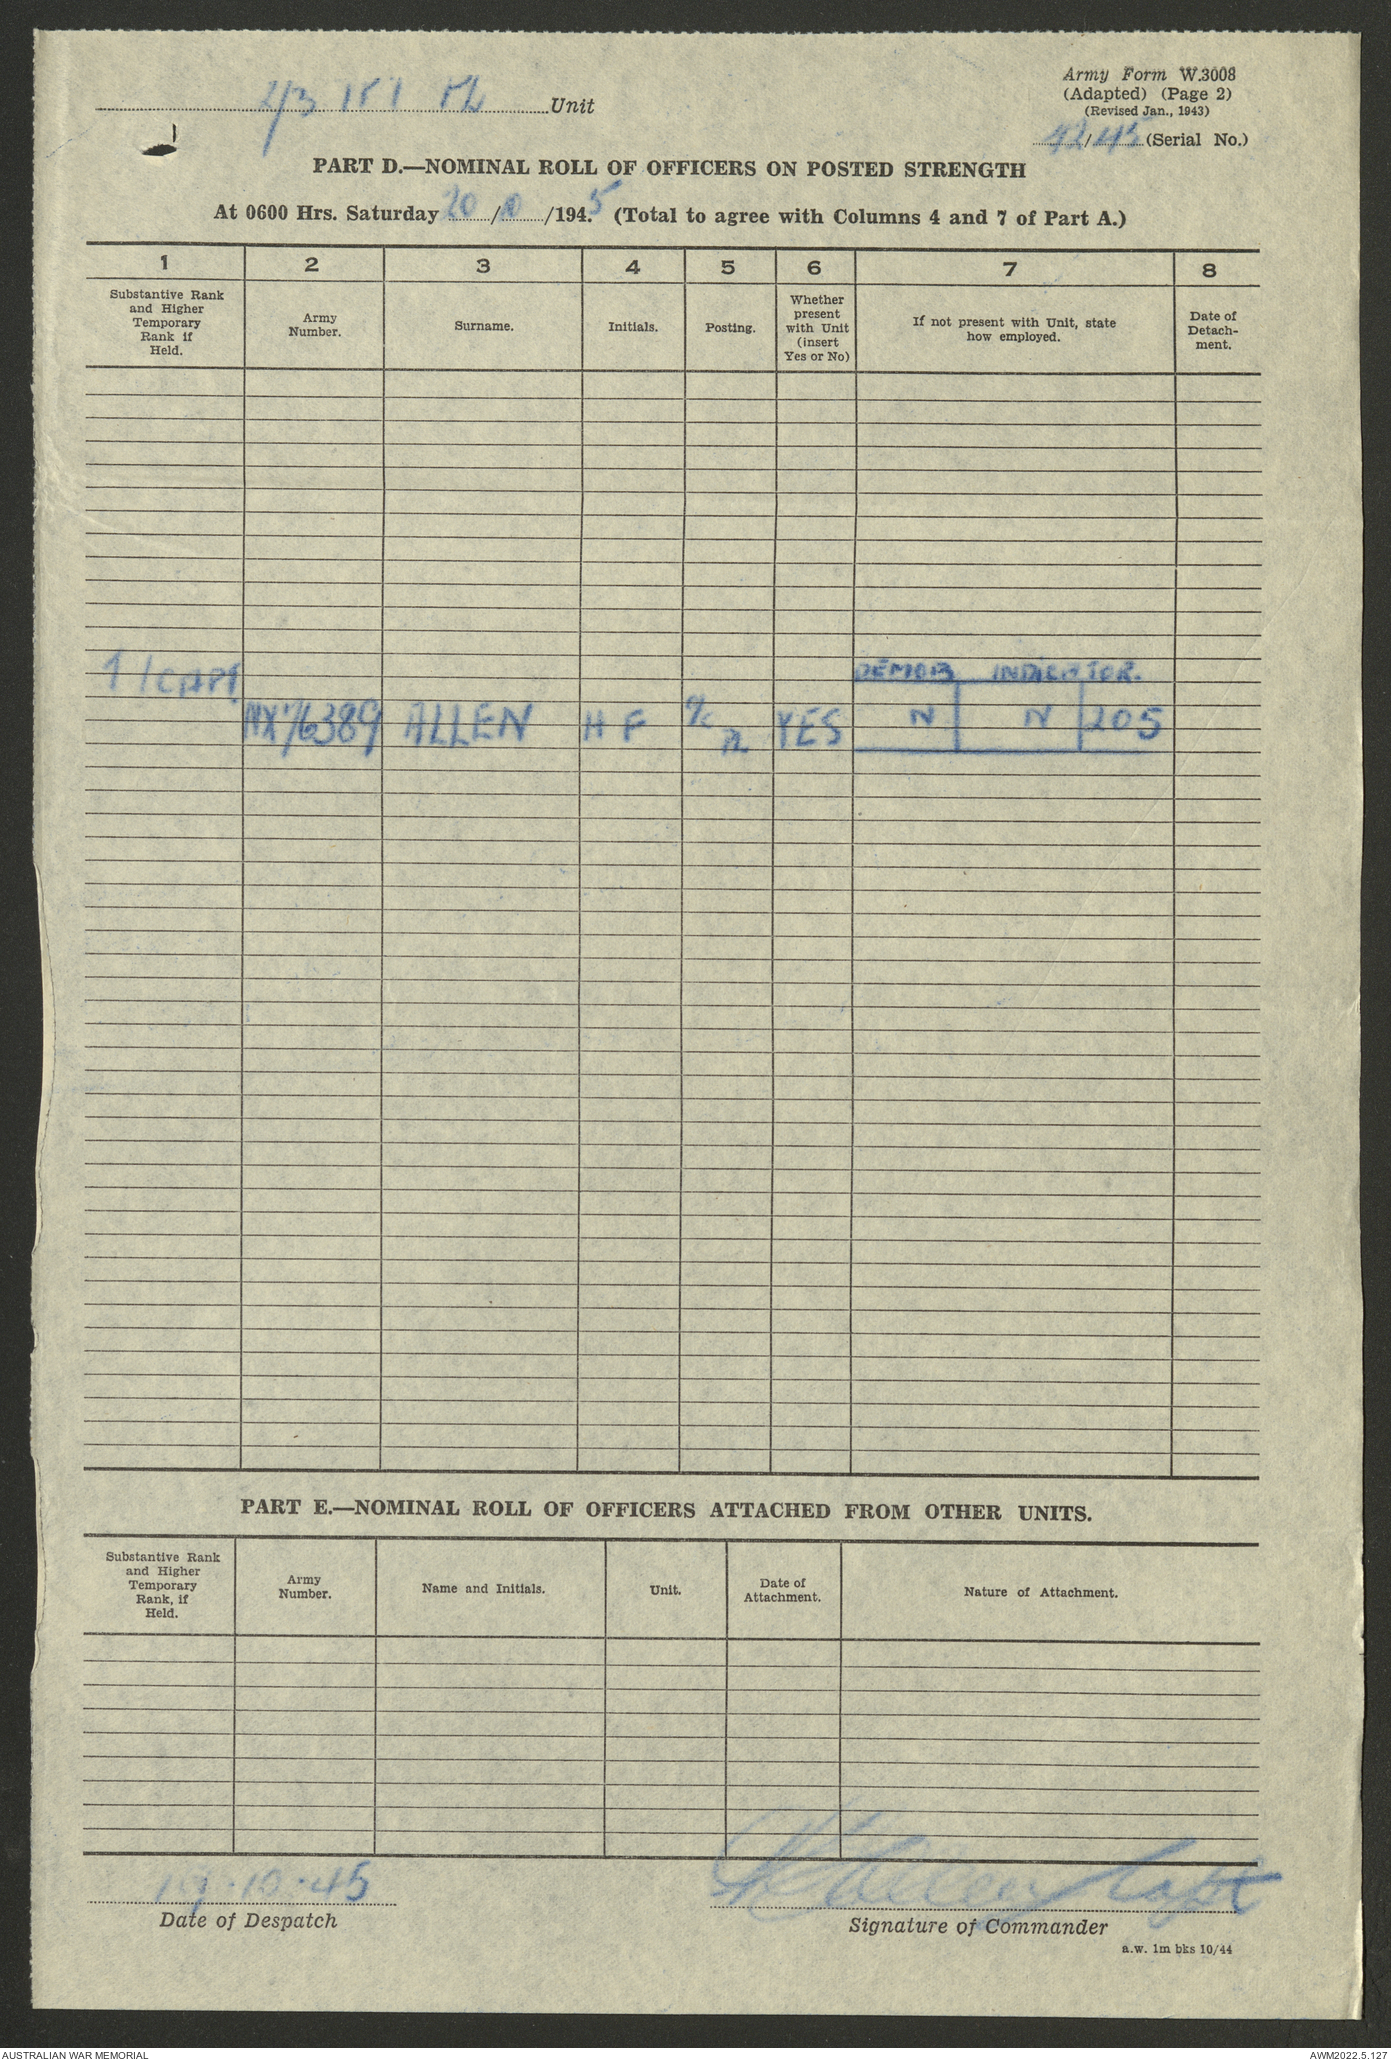 Army Form W.3008
Unit
(Adapted) (Page 2)
(Revised Jan., 1943)
42/45 (Serial No.)
PART D.—NOMINAL ROLL OF OFFICERS ON POSTED STRENGTH
At 0600 Hrs. Saturday 20/10/1945 (Total to agree with Columns 4 and 7 of Part A.)
1 2 3 4 5 6 7 8
Substantive Rank and Higher Temporary Rank if Held.
Army Number.
Surname.
Initials.
Posting.
Whether present with Unit (insert Yes or No)
If not present with Unit, state how employed.
Date of Detachment.
T/CAPT
DEMOB INDICATOR.
NX76389 ALLEN H F YES N N 205
PART E.—NOMINAL ROLL OF OFFICERS ATTACHED FROM OTHER UNITS.
Substantive Rank and Higher Temporary Rank, if Held.
Army Number.
Name and Initials.
Unit.
Date of Attachment.
Nature of Attachment.
19.10.45
HF Allen Capt
Date of Despatch
Signature of Commander
a.w. 1m bks 10/44
AUSTRALIAN WAR MEMORIAL
AWM2022.5.127